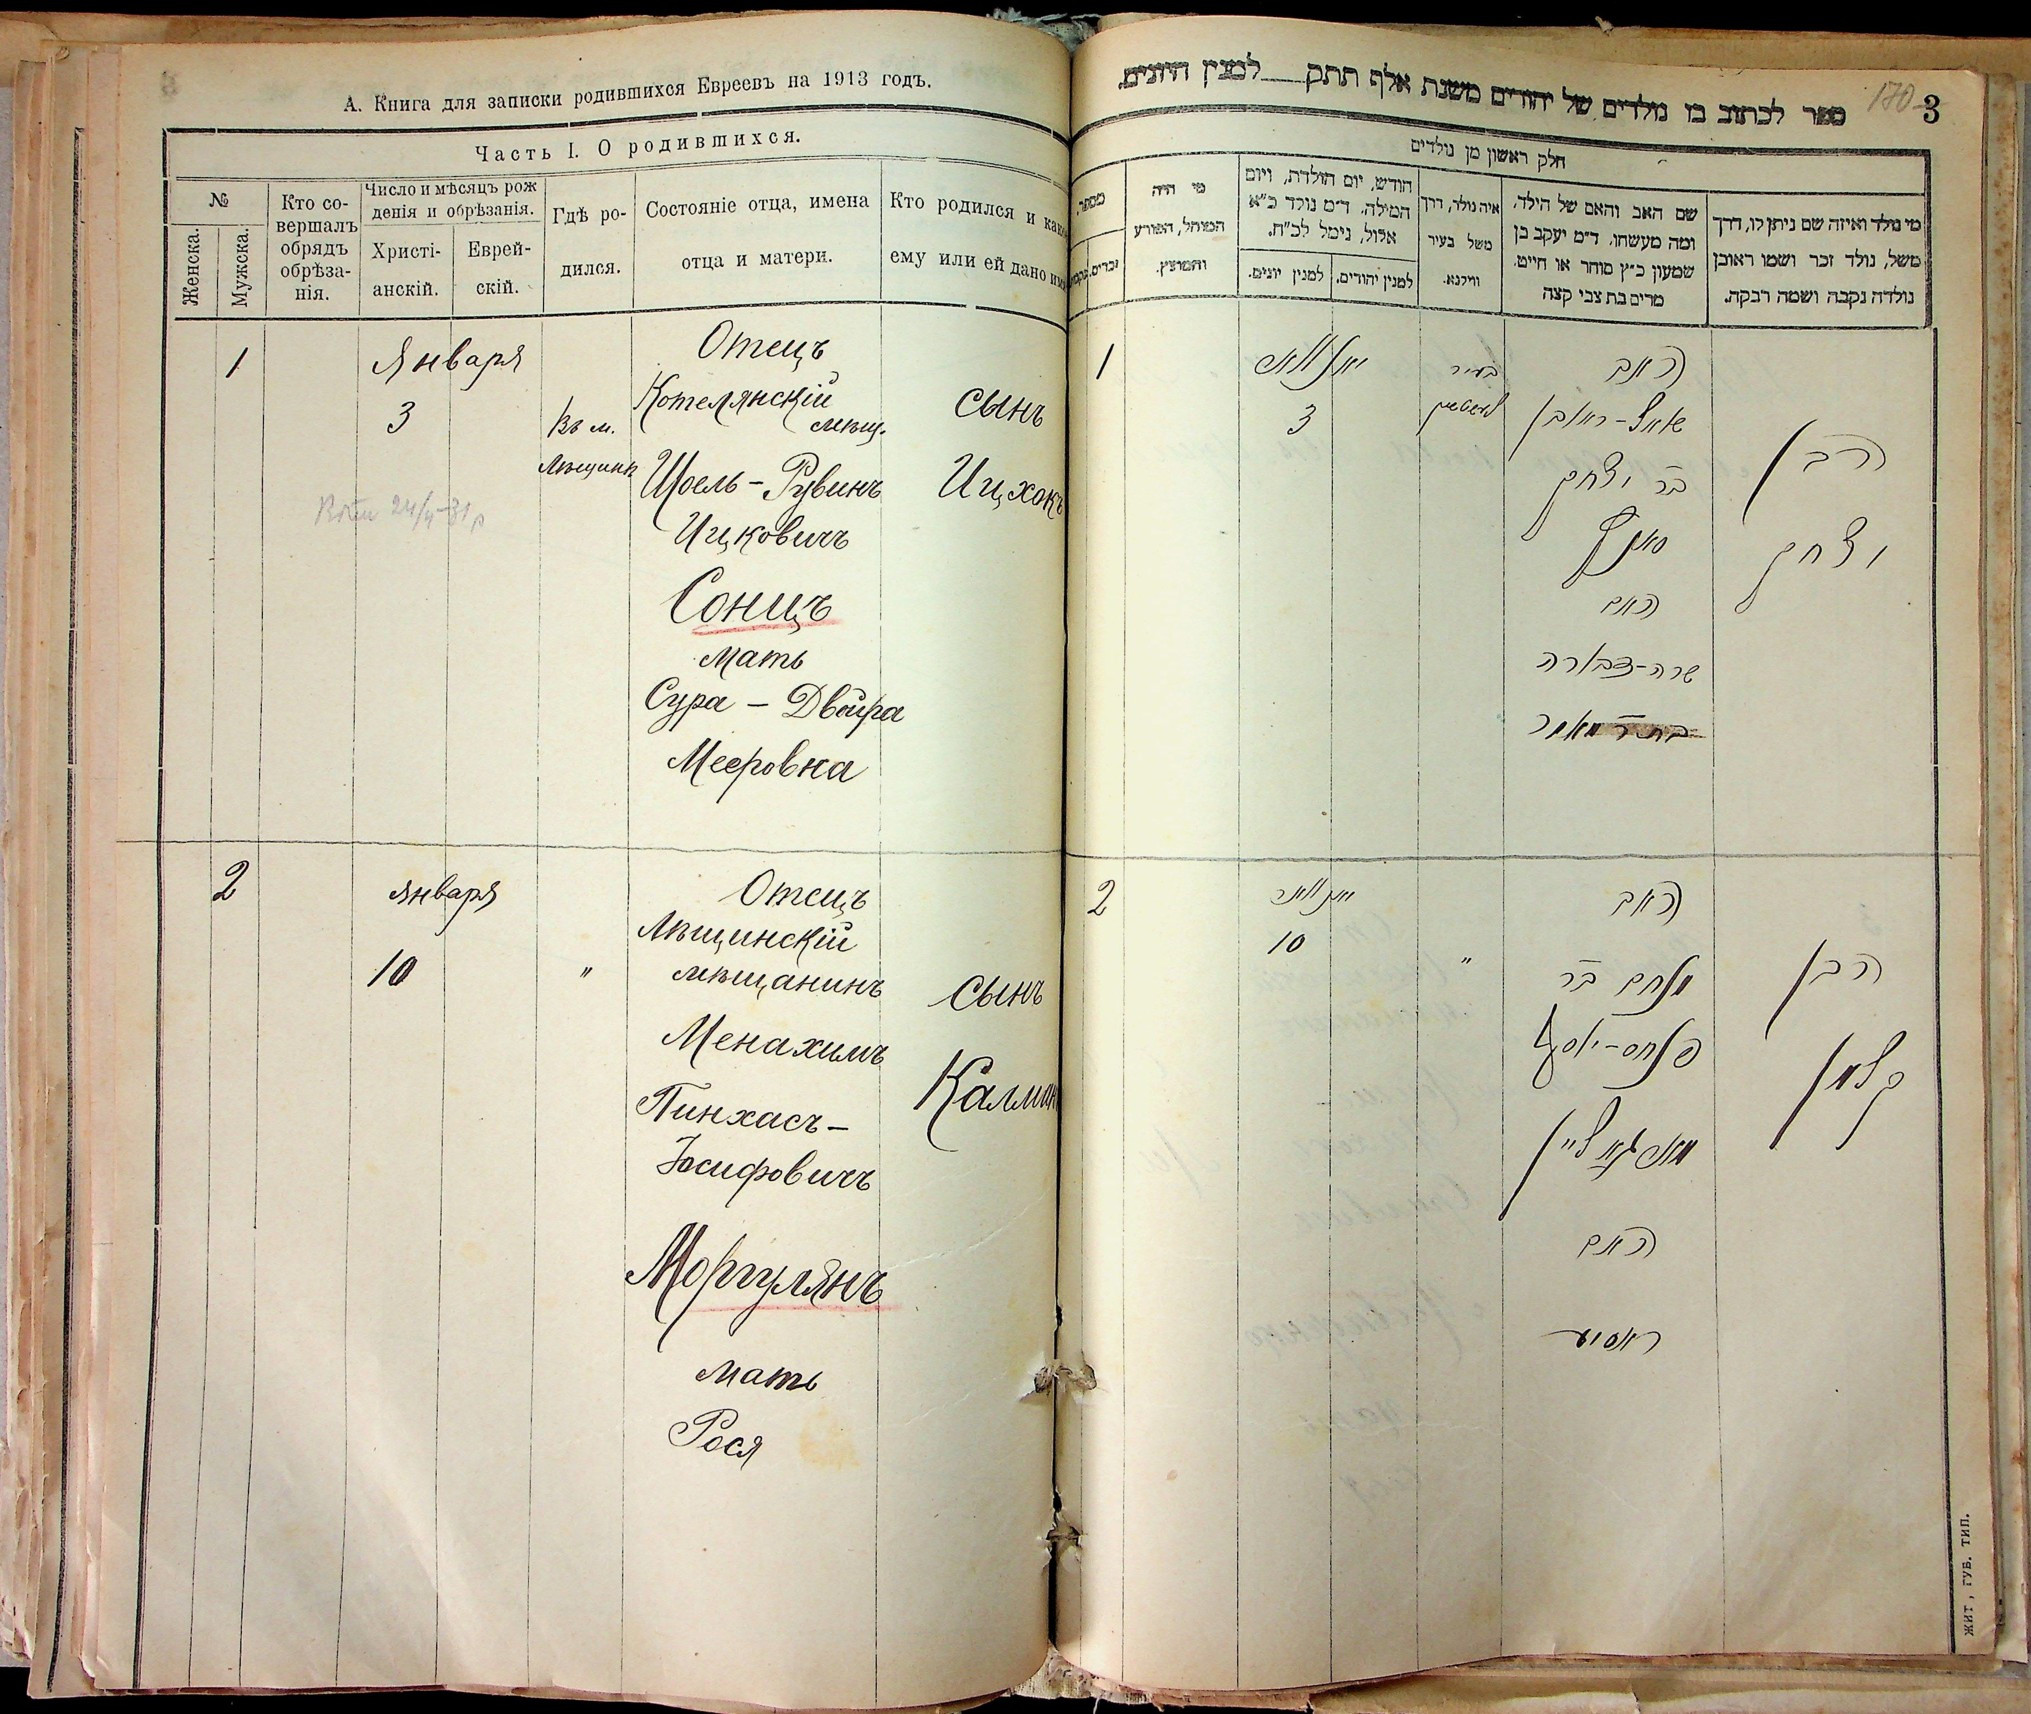 А. Книга для записки родившихся Евреевъ на 1913 годъ.
Часть I. О родившихся.
№
Женска.
Мужска.
Кто со-
вершалъ
обрядъ
обрѣза-
нія.
Число и мѣсяцъ рож
денія и обрѣзанія.
Христі-
анскій.
Еврей-
скій.
Гдѣ ро-
дился.
Состояніе отца, имена
отца и матери.
Кто родился и како
ему или ей дано имя
1
Января
3
Въ м.
Лѣщинѣ
Отецъ
Котелянскій
мѣщ.
Шоель-Рувинъ
Ицковичъ
Сонцъ
Мать
Сура - Двойра
Мееровна
сынъ
Ицхокъ
24/4-31 р
2
Января
10
"
Отецъ
Лѣщинскій
мѣщанинъ
Менахимъ
Пинхасъ-
Іосифовичъ
Моргулянъ
Мать
Рося
сынъ
Калман
ספר לכתוב בו נולדים של יהודים משנת אלף תתק למנין היונים.
170
3
חלק ראשון מן נולדים
מספר.
זכרים.
מי היה
המוהל, הפורע
והמוצץ.
חודש, יום הולדת, ויום
המילה. ד״מ נולד כ״א
אלול, נימל לכ״ח.
למנין יונים.
למנין יהודים.
איה נולד, דרך
משל בעיר
ווילנא.
שם האב והאם של הילד.
ומה מעשהו. ד״מ יעקב בן
שמעון כ״ץ סוחר או חייט.
מרים בת צבי קצה
מי נולד ואיזה שם ניתן לו, דרך
משל, נולד זכר ושמו ראובן
נולדה נקבה ושמה רבקה.
1
יאנוואר
3
בעיר
האב
שאול-ראובן
בר יצחק
האם
שרה-דבארה
בת ר׳ מאיר
הבן
יצחק
2
יאנוואר
10
"
האב
מנחם בר
פנחס-יוסף
מארגאליין
האם
ראסיע
הבן
קלמן
ЖИТ, ГУБ. ТИП.